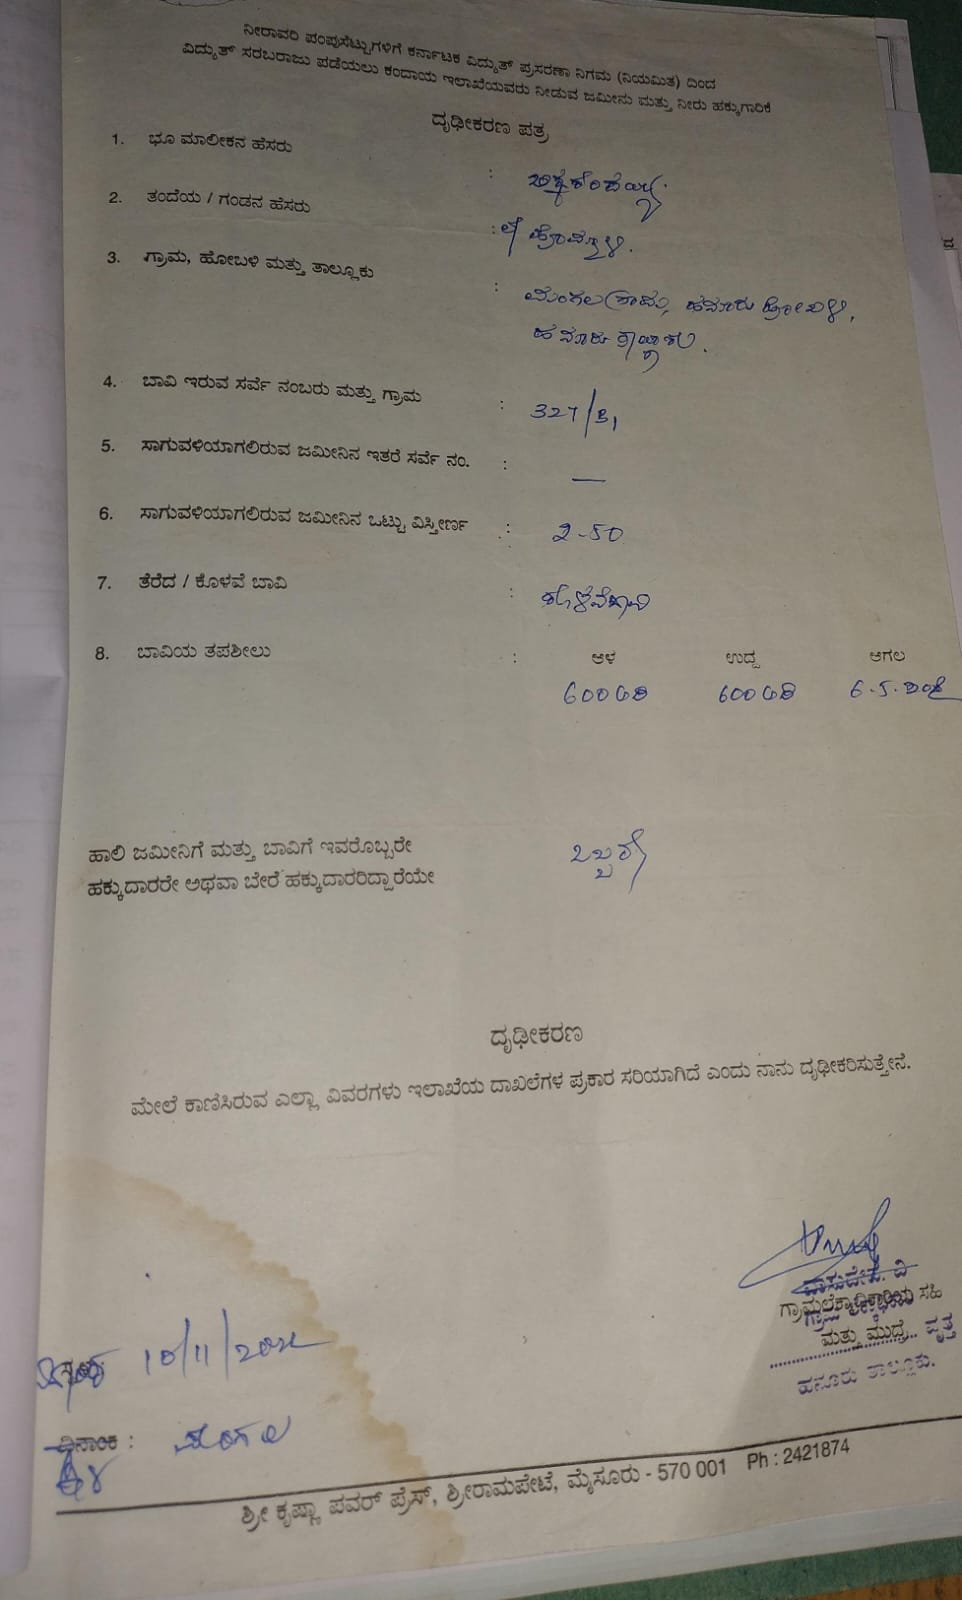 ನೀರಾವರಿ ಪಂಪುಸೆಟ್ಟುಗಳಿಗೆ ಕರ್ನಾಟಕ ವಿದ್ಯುತ್ ಪ್ರಸರಣಾ ನಿಗಮ (ನಿಯಮಿತ) ದಿಂದ
ವಿದ್ಯುತ್ ಸರಬರಾಜು ಪಡೆಯಲು ಕಂದಾಯ ಇಲಾಖೆಯವರು ನೀಡುವ ಜಮೀನು ಮತ್ತು ನೀರು ಹಕ್ಕುಗಾರಿಕೆ
ದೃಢೀಕರಣ ಪತ್ರ
1. ಭೂ ಮಾಲೀಕನ ಹೆಸರು :
2. ತಂದೆಯ / ಗಂಡನ ಹೆಸರು :
3. ಗ್ರಾಮ, ಹೋಬಳಿ ಮತ್ತು ತಾಲ್ಲೂಕು : ಮಂಗಲ ಗ್ರಾಮ, ಹನೂರು ಹೋಬಳಿ,
ಹನೂರು ತಾಲ್ಲೂಕು.
4. ಬಾವಿ ಇರುವ ಸರ್ವೆ ನಂಬರು ಮತ್ತು ಗ್ರಾಮ : 327/
5. ಸಾಗುವಳಿಯಾಗಲಿರುವ ಜಮೀನಿನ ಇತರೆ ಸರ್ವೆ ನಂ. : —
6. ಸಾಗುವಳಿಯಾಗಲಿರುವ ಜಮೀನಿನ ಒಟ್ಟು ವಿಸ್ತೀರ್ಣ : 2-50
7. ತೆರೆದ / ಕೊಳವೆ ಬಾವಿ : ಕೊಳವೆಬಾವಿ
8. ಬಾವಿಯ ತಪಶೀಲು : ಆಳ ಉದ್ದ ಅಗಲ
600 ಅಡಿ 600 ಅಡಿ 6.5.
ಹಾಲಿ ಜಮೀನಿಗೆ ಮತ್ತು ಬಾವಿಗೆ ಇವರೊಬ್ಬರೇ ಒಬ್ಬರೆ
ಹಕ್ಕುದಾರರೇ ಅಥವಾ ಬೇರೆ ಹಕ್ಕುದಾರರಿದ್ದಾರೆಯೇ
ದೃಢೀಕರಣ
ಮೇಲೆ ಕಾಣಿಸಿರುವ ಎಲ್ಲಾ ವಿವರಗಳು ಇಲಾಖೆಯ ದಾಖಲೆಗಳ ಪ್ರಕಾರ ಸರಿಯಾಗಿದೆ ಎಂದು ನಾನು ದೃಢೀಕರಿಸುತ್ತೇನೆ.
ವಾಸುದೇವ. ವಿ
ಗ್ರಾಮಲೆಕ್ಕಾಧಿಕಾರಿಯ ಸಹಿ
ಮತ್ತು ಮುದ್ರೆ... ವೃತ್ತ
ಹನೂರು ತಾಲ್ಲೂಕು.
10/11/
ದಿನಾಂಕ : ಮಂಗಲ
ಶ್ರೀ ಕೃಷ್ಣಾ ಪವರ್ ಪ್ರೆಸ್, ಶ್ರೀರಾಮಪೇಟೆ, ಮೈಸೂರು - 570 001 Ph : 2421874